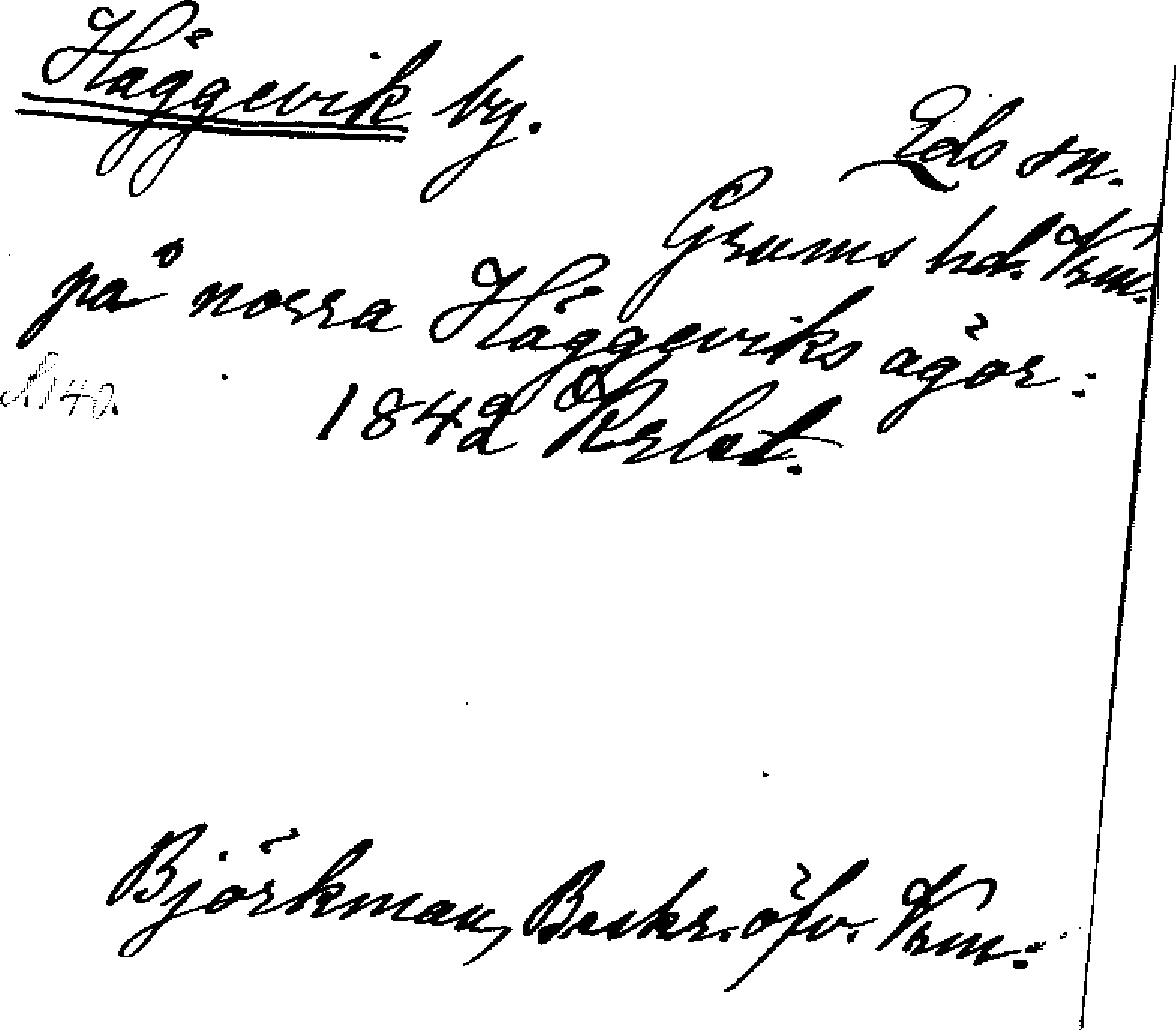 Häggevik by.
Eds sn.
Grums hd. Vrm.
på norra Häggeviks ägor:
N 40.
1842 Krlat.
Björkman, Beskr. öfv. Vrm.